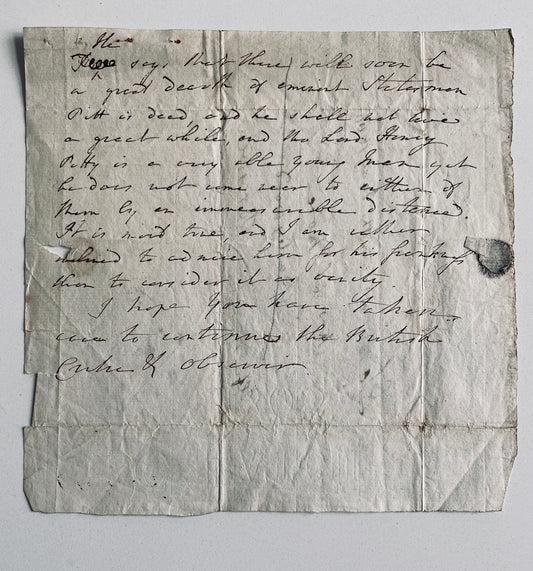 He
says that there will soon be
a great dearth of eminent Statesmen
Pitt is dead, and he shall not live
a great while, and tho Lord Henry
Petty is a very able Young Man yet
he does not come near to either of
them by an immeasurable distance.
It is most true, and I am rather
inclined to admire him for his frankness
than to consider it as vanity.
I hope you have taken
care to continue the British
Critic & Observer